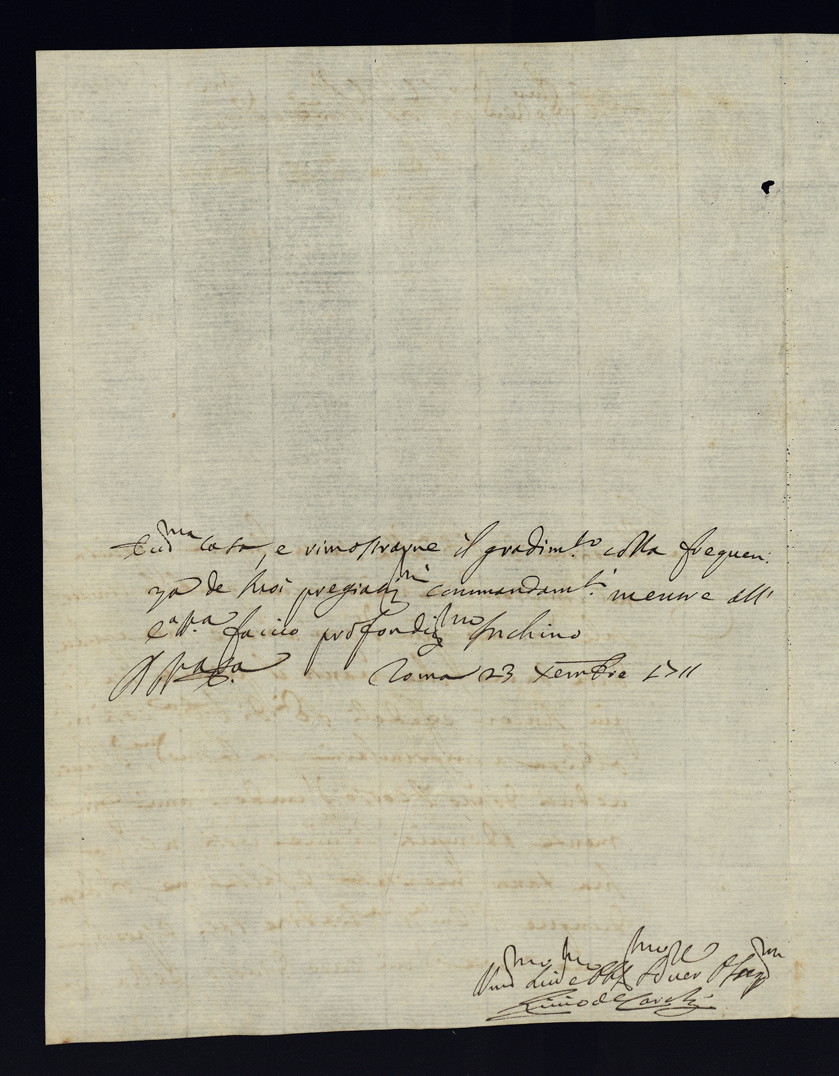 Ecc.ma Casa, e rimostrarne il gradim.to colla frequen:
za de suoi pregiatis.mi commandam.ti mentre all'
E.V. faccio profondis.mo Inchino
Roma 23 Xembre 1711
Um.mo Div.mo et Obl.mo Ser.re Osseq.mo